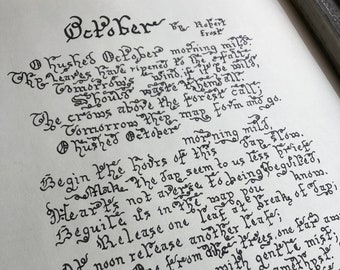 October by Robert Frost
O hushed October morning mild,
Thy leaves have ripened to the fall;
Tomorrow's wind, if it be wild,
Should waste them all.
The crows above the forest call;
Tomorrow they may form and go.
O hushed October morning mild,
Begin the hours of this day slow.
Make the day seem to us less brief.
Hearts not averse to being beguiled,
Beguile us in the way you know.
Release one leaf at break of day;
At noon release another leaf;
One from our trees, one far away
with gentle mist;
amethyst.